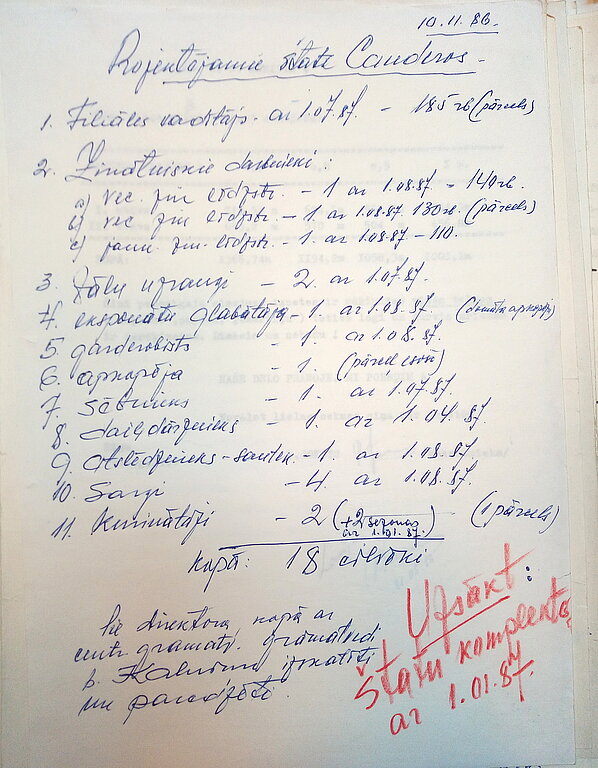 10.11.86.
Projektējamie štati Canderos.
1. Filiāles vadītājs ar 1.07.87. - 185 rb (pārcels)
2. Zinātniskie darbinieki:
a) vec. zin līdzstr. - 1 ar 1.08.87. - 140 rb.
b) vec zin līdzstr. - 1. ar 1.08.87. 130 rb. (pārcels)
c) jaun. zin. līdzstr. - 1. ar 1.08.87 - 110.
3. Zāļu uzraugi - 2. ar 1.07.87.
4. eksponātu glabātāja - 1. ar 1.08.87.
5. garderobists - 1. ar 1.08.87.
6. apkopēja - 1. (pārcel esošo)
7. Sētnieks - 1. ar 1.07.87.
8. daiļdārznieks - 1. ar 1.04.87.
9. Atslēdznieks-santen. - 1. ar 1.08.87.
10. Sargi - 4 ar 1.08.87.
11. Kurinātāji - 2 (+2 sezonas ar 1.01.87.) (1 pārcels)
kopā: 18 cilvēki
Pie direktora kopā ar
centr. gramatv. grāmatvedi
b. izskatīti
un
Uzsākt:
Štatu komplektē
ar 1.01.87.